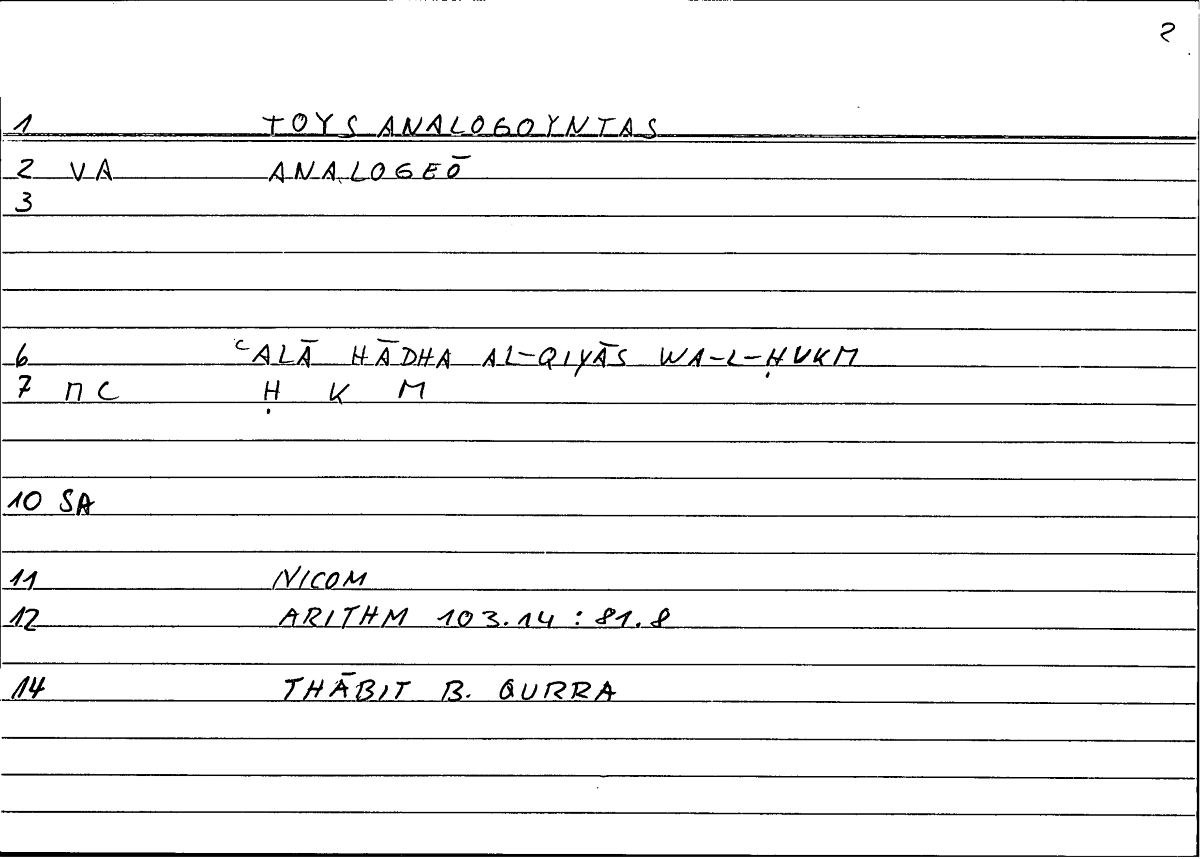 2
1 TOYS ANALOGOYNTAS
2 VA ANALOGEŌ
3
6 ʿALĀ HĀDHA AL-QIYĀS WA-L-ḤUKM
7 ПC Ḥ K M
10 SA
11 NICOM
12 ARITHM 103.14 : 81.8
14 THĀBIT B. QURRA